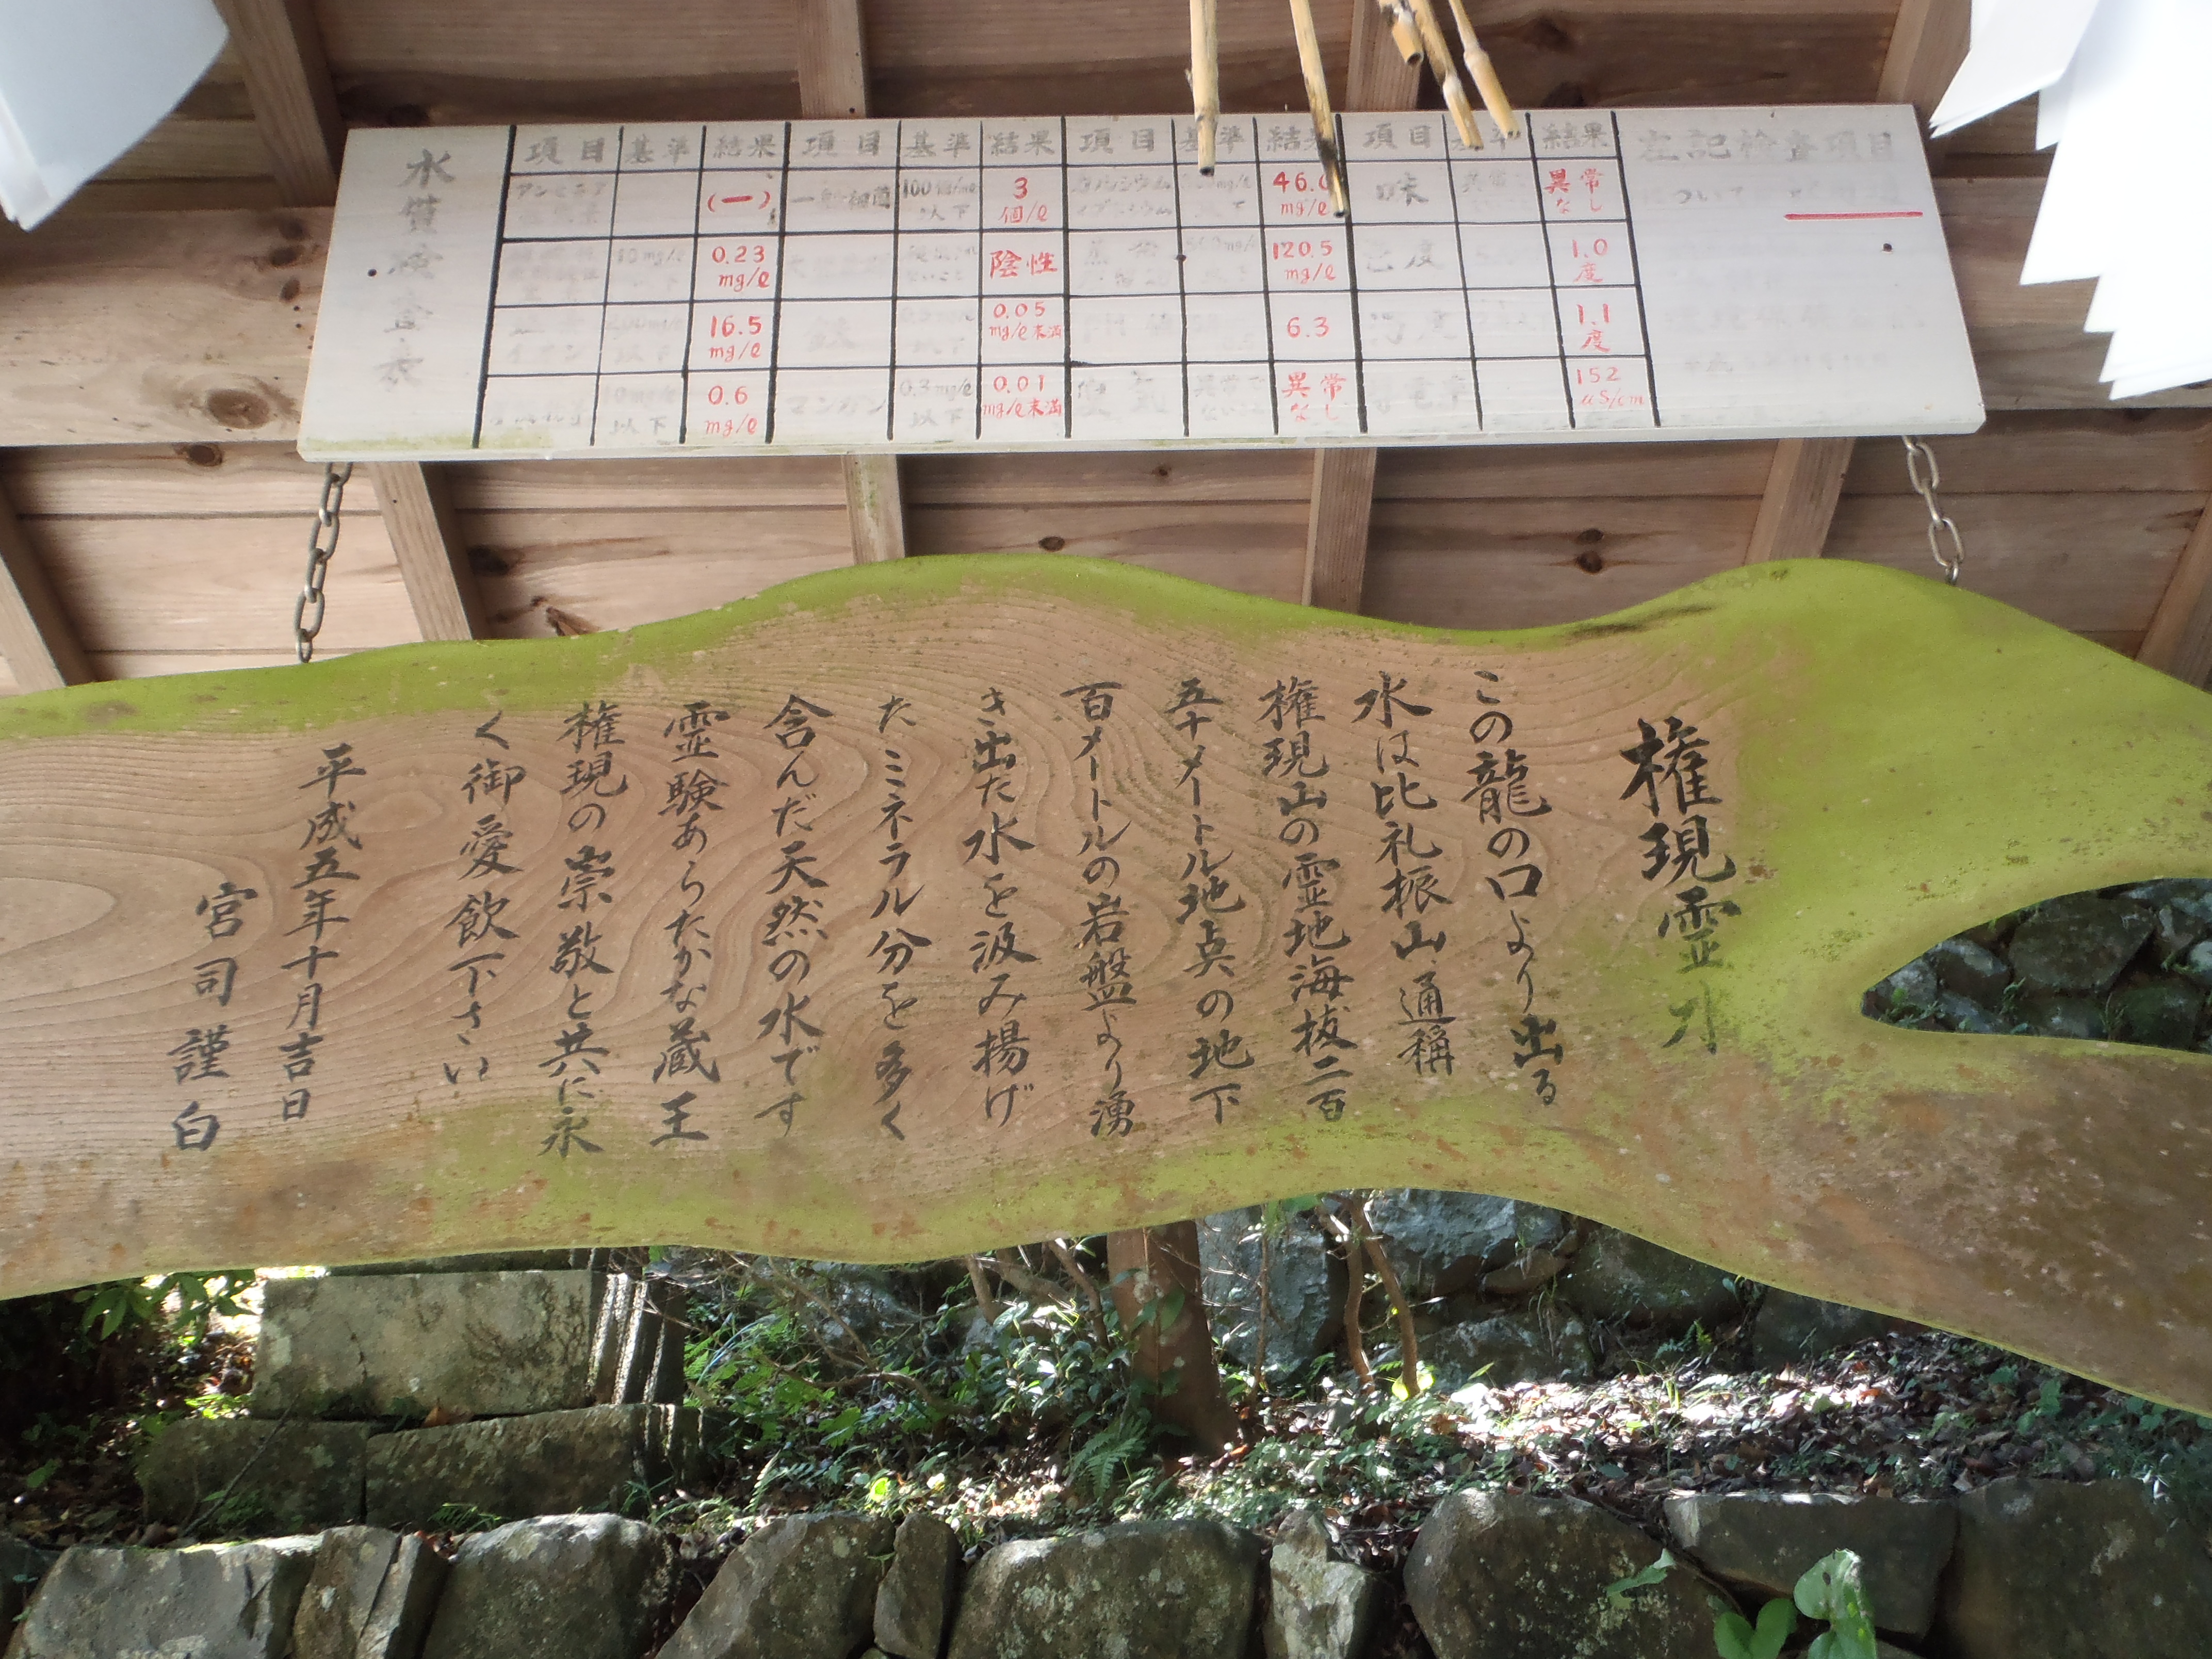 水質検査表
項目 基準 結果 項目 基準 結果 項目 結果 項目 結果 左記検査項目
アンモニア (一) 一般細菌 100個/ml以下 3個/ℓ 46.0mg/ℓ 味 異常なし ついて
10mg/ℓ 0.23mg/ℓ 陰性 120.5mg/ℓ 色度 1.0度
イオン 以下 16.5mg/ℓ 鉄 以下 0.05mg/ℓ未満 6.3 1.1度
10mg/ℓ以下 0.6mg/ℓ マンガン 0.3mg/ℓ以下 0.01mg/ℓ未満 臭気 異常でないこと 異常なし 152μS/cm
権現霊水
この龍の口より出る
水は比礼振山通稱
権現山の霊地海抜二百
五十メートル地点の地下
百メートルの岩盤より湧
き出た水を汲み揚げ
たミネラル分を多く
含んだ天然の水です
霊験あらたかな蔵王
権現の崇敬と共に永
く御愛飲下さい
平成五年十月吉日
宮司謹白